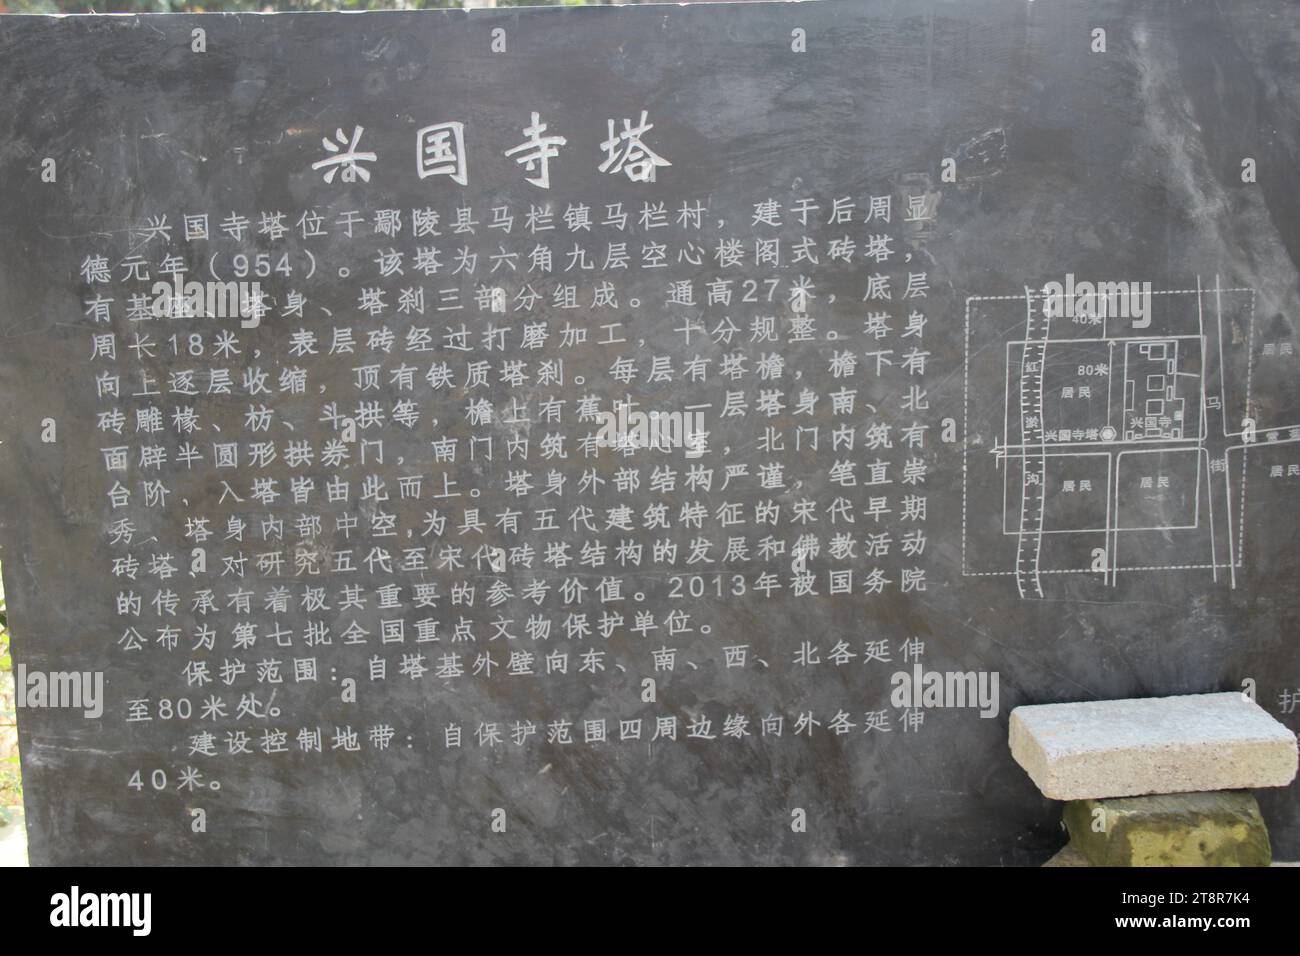 兴国寺塔
兴国寺塔位于鄢陵县马栏镇马栏村，建于后周显
德元年（954）。该塔为六角九层空心楼阁式砖塔，
有基座、塔身、塔刹三部分组成。通高27米，底层
周长18米，表层砖经过打磨加工，十分规整。塔身
向上逐层收缩，顶有铁质塔刹。每层有塔檐，檐下有
砖雕椽、枋、斗拱等，檐上有蕉叶。一层塔身南、北
面辟半圆形拱券门，南门内筑有塔心室，北门内筑有
台阶，入塔皆由此而上。塔身外部结构严谨，笔直崇
秀、塔身内部中空,为具有五代建筑特征的宋代早期
砖塔、对研究五代至宋代砖塔结构的发展和佛教活动
的传承有着极其重要的参考价值。2013年被国务院
公布为第七批全国重点文物保护单位。
保护范围：自塔基外壁向东、南、西、北各延伸
至80米处。
建设控制地带：自保护范围四周边缘向外各延伸
40米。
40米
80米
居民
居民
兴国寺
兴国寺塔
马
街
沟
居民
居民
居民
护
alamy
Image ID: 2T8R7K4
www.alamy.com